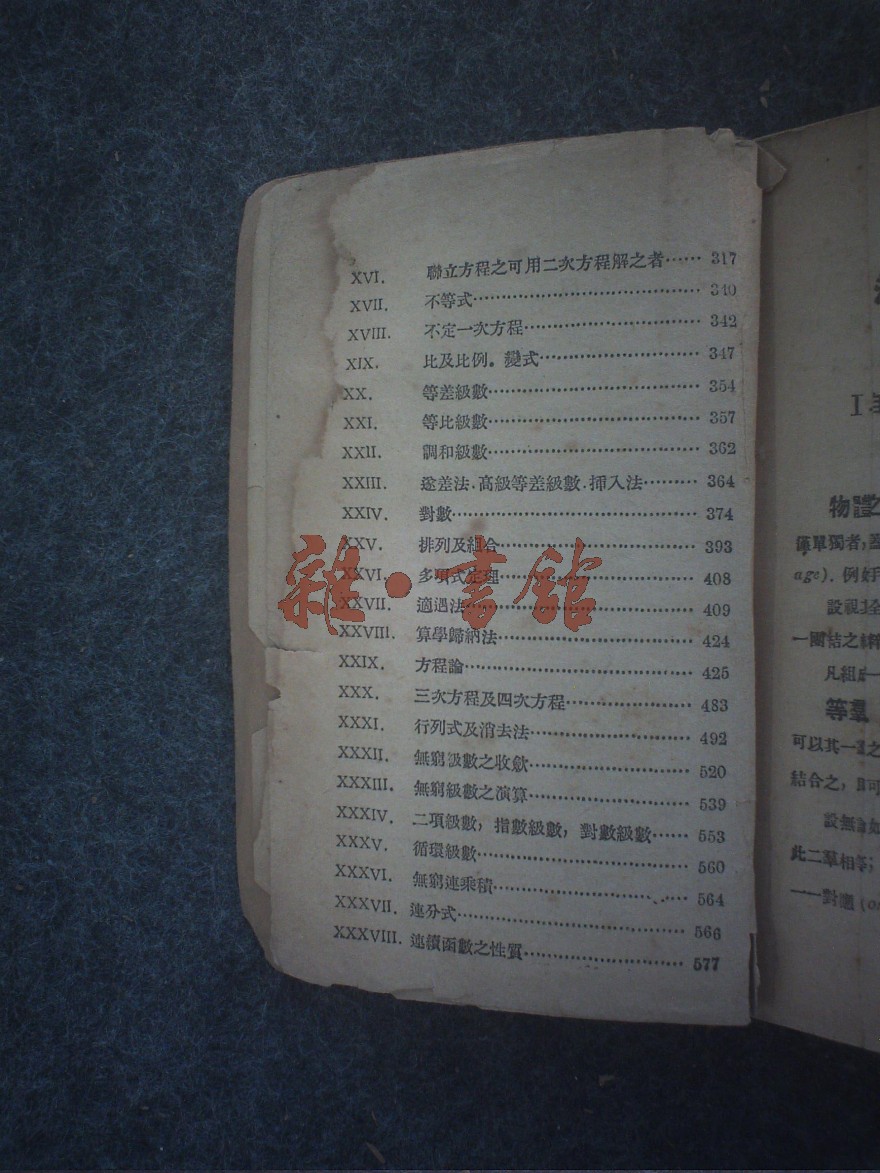 XVI. 聯立方程之可用二次方程解之者…… 317
XVII. 不等式…………………………… 340
XVIII. 不定一次方程…………………… 342
XIX. 比及比例。變式………………… 347
XX. 等差級數………………………… 354
XXI. 等比級數………………………… 357
XXII. 調和級數………………………… 362
XXIII. 遞差法.高級等差級數.插入法……… 364
XXIV. 對數……………………………… 374
XXV. 排列及組合……………………… 393
XXVI. 多項式定理……………………… 408
XXVII. 適遇法…………………………… 409
XXVIII. 算學歸納法……………………… 424
XXIX. 方程論…………………………… 425
XXX. 三次方程及四次方程…………… 483
XXXI. 行列式及消去法………………… 492
XXXII. 無窮級數之收歛………………… 520
XXXIII. 無窮級數之演算………………… 539
XXXIV. 二項級數,指數級數,對數級數…… 553
XXXV. 循環級數………………………… 560
XXXVI. 無窮連乘積……………………… 564
XXXVII. 連分式…………………………… 566
XXXVIII. 連續函數之性質………………… 577
雜·書館
I
物體之
僅單獨者,蓋
age). 例如手
設視全
一團結之
凡組成一
等羣
可以其一羣之
結合之,且可
設無論如
此二羣相等;
一一對應 (on